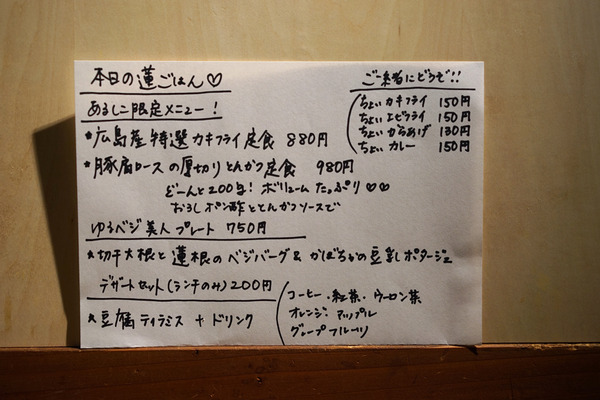 本日の蓮ごはん♡
あるしこ限定メニュー!
*広島産特選カキフライ定食 880円
*豚肩ロースの厚切りとんかつ定食 980円
どーんと200g! ボリュームたっぷり♡♡
おろしポン酢ととんかつソースで
ゆるベジ美人プレート 750円
*切干大根と蓮根のベジバーグ & かぼちゃの豆乳ポタージュ
デザートセット(ランチのみ)200円
*豆腐ティラミス + ドリンク
コーヒー・紅茶・ウーロン茶
オレンジ・アップル
グレープフルーツ
ご一緒にどうぞ!!
ちょい カキフライ 150円
ちょい エビフライ 150円
ちょい からあげ 130円
ちょい カレー 150円